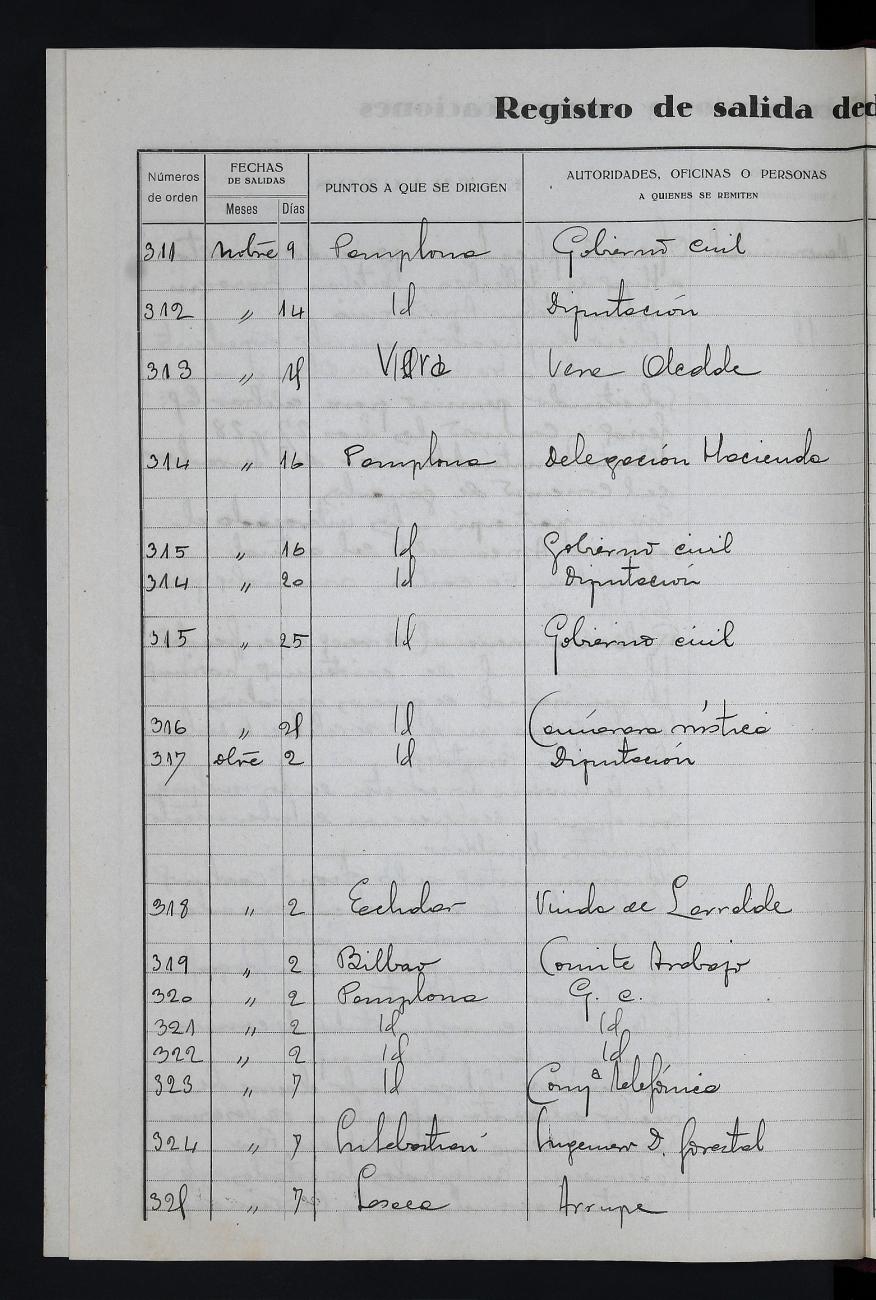 Registro de salida ded
Números de orden FECHAS DE SALIDAS Meses Días PUNTOS A QUE SE DIRIGEN AUTORIDADES, OFICINAS O PERSONAS A QUIENES SE REMITEN
311 Nobre 9 Pamplona Gobierno civil
312 " 14 Id Diputación
313 " 15 Vera Vera Alcalde
314 " 16 Pamplona Delegación Hacienda
315 " 16 Id Gobierno civil
314 " 20 Id Diputación
315 " 25 Id Gobierno civil
316 " 25 Id rústica
317 Dbre 2 Id Diputación
318 " 2 Echalar Viuda de Larralde
319 " 2 Bilbao Comite Trabajo
320 " 2 Pamplona G. c.
321 " 2 Id Id
322 " 2 Id Id
323 " 7 Id Compª telefónica
324 " 7 Ingeniero D. forestal
325 " 7 Lesaca Arrupe